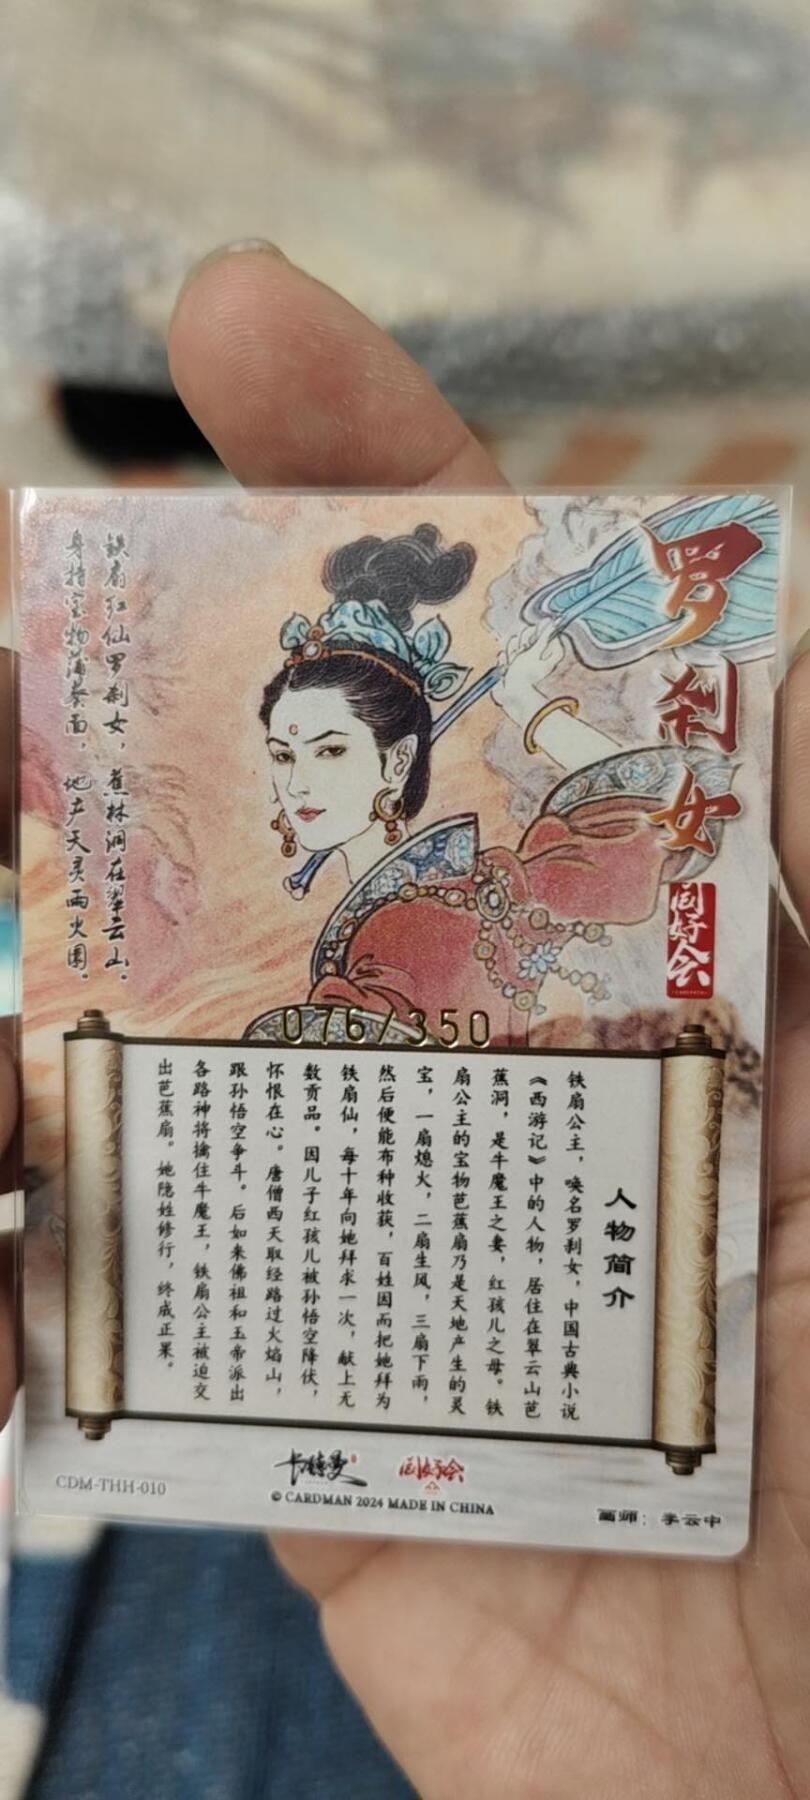 罗刹女
同好会
铁扇红仙罗刹女，蕉林洞在翠云山。
身持宝物蒲葵面，地产天灵两火圆。
076/350
人物简介
铁扇公主，唤名罗刹女，中国古典小说
《西游记》中的人物，居住在翠云山芭
蕉洞，是牛魔王之妻，红孩儿之母。铁
扇公主的宝物芭蕉扇乃是天地产生的灵
宝，一扇熄火，二扇生风，三扇下雨，
然后便能布种收获，百姓因而把她拜为
铁扇仙，每十年向她拜求一次，献上无
数贡品。因儿子红孩儿被孙悟空降伏，
怀恨在心。唐僧西天取经路过火焰山，
跟孙悟空争斗。后如来佛祖和玉帝派出
各路神将擒住牛魔王，铁扇公主被迫交
出芭蕉扇。她隐姓修行，终成正果。
CDM-THH-010
卡德曼
同好会
© CARDMAN 2024 MADE IN CHINA
画师：李云中